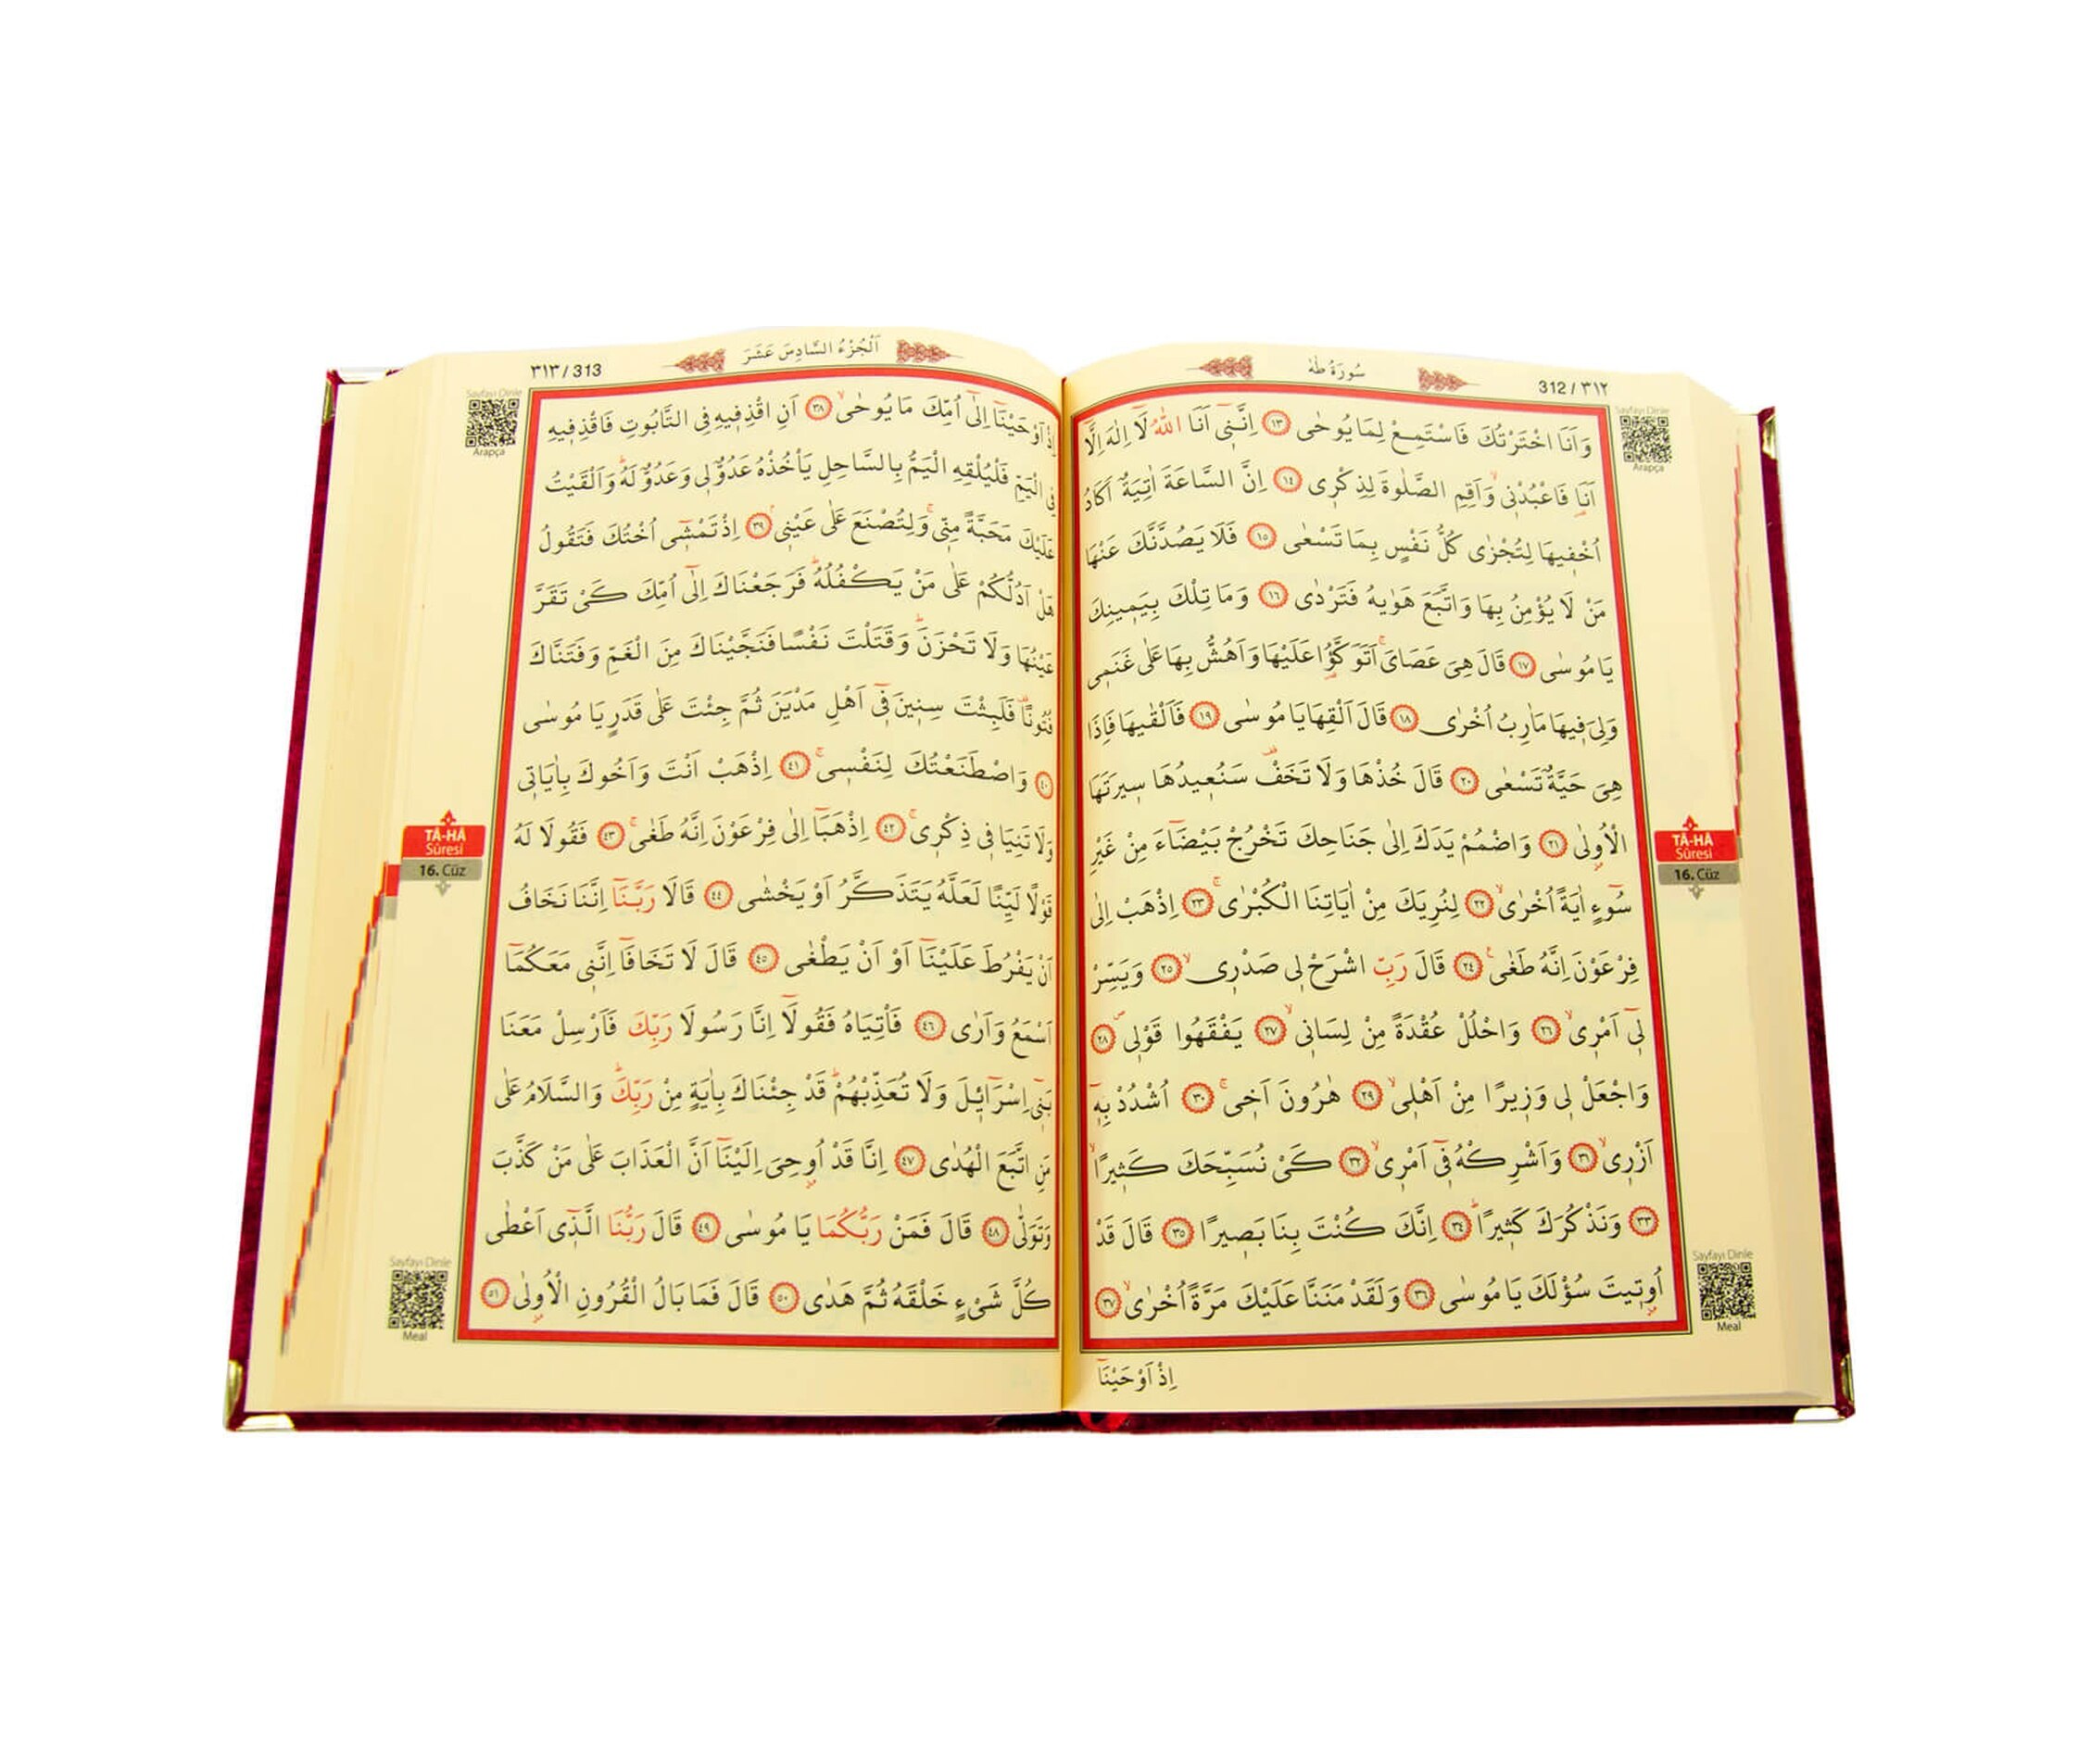 312 / ٣١٢
سُورَةُ طٰهٰ
Sayfayı Dinle
Arapça
وَاَنَا اخْتَرْتُكَ فَاسْتَمِعْ لِمَا يُوحٰى ١٣ اِنَّنٖٓي اَنَا اللّٰهُ لَٓا اِلٰهَ اِلَّٓا
اَنَا۬ فَاعْبُدْنٖيۙ وَاَقِمِ الصَّلٰوةَ لِذِكْرٖي ١٤ اِنَّ السَّاعَةَ اٰتِيَةٌ اَكَادُ
اُخْفٖيهَا لِتُجْزٰى كُلُّ نَفْسٍ بِمَا تَسْعٰى ١٥ فَلَا يَصُدَّنَّكَ عَنْهَا
مَنْ لَا يُؤْمِنُ بِهَا وَاتَّبَعَ هَوٰيهُ فَتَرْدٰى ١٦ وَمَا تِلْكَ بِيَمٖينِكَ
يَا مُوسٰى ١٧ قَالَ هِيَ عَصَايَۚ اَتَوَكَّؤُ۬ا عَلَيْهَا وَاَهُشُّ بِهَا عَلٰى غَنَمٖي
وَلِيَ فٖيهَا مَاٰرِبُ اُخْرٰى ١٨ قَالَ اَلْقِهَا يَا مُوسٰى ١٩ فَاَلْقٰيهَا فَاِذَا
هِيَ حَيَّةٌ تَسْعٰى ٢٠ قَالَ خُذْهَا وَلَا تَخَفْ۠ سَنُعٖيدُهَا سٖيرَتَهَا
الْاُو۫لٰى ٢١ وَاضْمُمْ يَدَكَ اِلٰى جَنَاحِكَ تَخْرُجْ بَيْضَٓاءَ مِنْ غَيْرِ
سُٓوءٍ اٰيَةً اُخْرٰىۙ ٢٢ لِنُرِيَكَ مِنْ اٰيَاتِنَا الْكُبْرٰىۚ ٢٣ اِذْهَبْ اِلٰى
فِرْعَوْنَ اِنَّهُ طَغٰى۟ ٢٤ قَالَ رَبِّ اشْرَحْ لٖي صَدْرٖيۙ ٢٥ وَيَسِّرْ
لٖٓي اَمْرٖيۙ ٢٦ وَاحْلُلْ عُقْدَةً مِنْ لِسَانٖيۙ ٢٧ يَفْقَهُوا قَوْلٖيۖ ٢٨
وَاجْعَلْ لٖي وَزٖيرًا مِنْ اَهْلٖيۙ ٢٩ هٰرُونَ اَخٖيۚ ٣٠ اُشْدُدْ بِهٖٓ
اَزْرٖيۙ ٣١ وَاَشْرِكْهُ فٖٓي اَمْرٖيۙ ٣٢ كَيْ نُسَبِّحَكَ كَثٖيرًاۙ
٣٣ وَنَذْكُرَكَ كَثٖيرًاۜ ٣٤ اِنَّكَ كُنْتَ بِنَا بَصٖيرًا ٣٥ قَالَ قَدْ
اُو۫تٖيتَ سُؤْلَكَ يَا مُوسٰى ٣٦ وَلَقَدْ مَنَنَّا عَلَيْكَ مَرَّةً اُخْرٰىۙ ٣٧
اِذْ اَوْحَيْنَٓا
TÂ-HÂ
Sûresi
16. Cüz
Sayfayı Dinle
Meal
٣١٣ / 313
اَلْجُزْءُ السَّادِسَ عَشَرَ
Sayfayı Dinle
Arapça
اِذْ اَوْحَيْنَٓا اِلٰٓى اُمِّكَ مَا يُوحٰىۙ ٣٨ اَنِ اقْذِفٖيهِ فِي التَّابُوتِ فَاقْذِفٖيهِ
فِي الْيَمِّ فَلْيُلْقِهِ الْيَمُّ بِالسَّاحِلِ يَأْخُذْهُ عَدُوٌّ لٖي وَعَدُوٌّ لَهُۜ وَاَلْقَيْتُ
عَلَيْكَ مَحَبَّةً مِنّٖيۚ وَلِتُصْنَعَ عَلٰى عَيْنٖيۢ ٣٩ اِذْ تَمْشٖٓي اُخْتُكَ فَتَقُولُ
هَلْ اَدُلُّكُمْ عَلٰى مَنْ يَكْفُلُهُۜ فَرَجَعْنَاكَ اِلٰٓى اُمِّكَ كَيْ تَقَرَّ
عَيْنُهَا وَلَا تَحْزَنَۜ وَقَتَلْتَ نَفْسًا فَنَجَّيْنَاكَ مِنَ الْغَمِّ وَفَتَنَّاكَ
فُتُونًا۠ فَلَبِثْتَ سِنٖينَ فٖٓي اَهْلِ مَدْيَنَ ثُمَّ جِئْتَ عَلٰى قَدَرٍ يَا مُوسٰى
٤٠ وَاصْطَنَعْتُكَ لِنَفْسٖيۚ ٤١ اِذْهَبْ اَنْتَ وَاَخُوكَ بِاٰيَاتٖي
وَلَا تَنِيَا فٖي ذِكْرٖيۚ ٤٢ اِذْهَبَٓا اِلٰى فِرْعَوْنَ اِنَّهُ طَغٰىۚ ٤٣ فَقُولَا لَهُ
قَوْلًا لَيِّنًا لَعَلَّهُ يَتَذَكَّرُ اَوْ يَخْشٰى ٤٤ قَالَا رَبَّنَٓا اِنَّنَا نَخَافُ
اَنْ يَفْرُطَ عَلَيْنَٓا اَوْ اَنْ يَطْغٰى ٤٥ قَالَ لَا تَخَافَٓا اِنَّنٖي مَعَكُمَٓا
اَسْمَعُ وَاَرٰى ٤٦ فَاْتِيَاهُ فَقُولَٓا اِنَّا رَسُولَا رَبِّكَ فَاَرْسِلْ مَعَنَا
بَنٖٓي اِسْرَٓائٖلَ وَلَا تُعَذِّبْهُمْۜ قَدْ جِئْنَاكَ بِاٰيَةٍ مِنْ رَبِّكَۜ وَالسَّلَامُ عَلٰى
مَنِ اتَّبَعَ الْهُدٰى ٤٧ اِنَّا قَدْ اُو۫حِيَ اِلَيْنَٓا اَنَّ الْعَذَابَ عَلٰى مَنْ كَذَّبَ
وَتَوَلّٰى ٤٨ قَالَ فَمَنْ رَبُّكُمَا يَا مُوسٰى ٤٩ قَالَ رَبُّنَا الَّذٖٓي اَعْطٰى
كُلَّ شَيْءٍ خَلْقَهُ ثُمَّ هَدٰى ٥٠ قَالَ فَمَا بَالُ الْقُرُونِ الْاُو۫لٰى ٥١
TÂ-HÂ
Sûresi
16. Cüz
Sayfayı Dinle
Meal